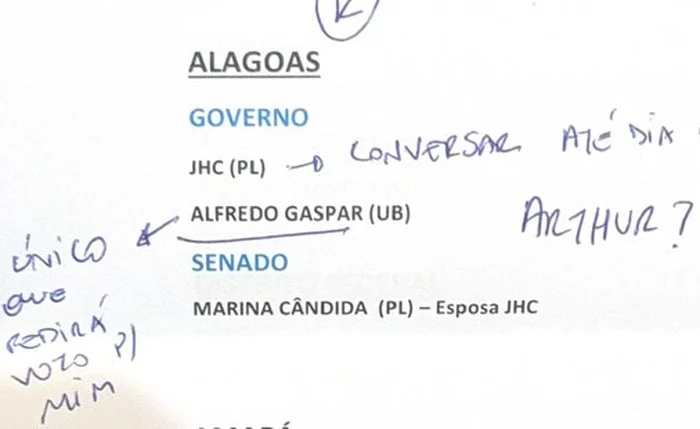 ALAGOAS
GOVERNO
JHC (PL) → CONVERSAR ATÉ DIA
ALFREDO GASPAR (UB)
ARTHUR?
ÚNICO
QUE
PEDIRÁ
VOTO P/
MIM
SENADO
MARINA CÂNDIDA (PL) – Esposa JHC